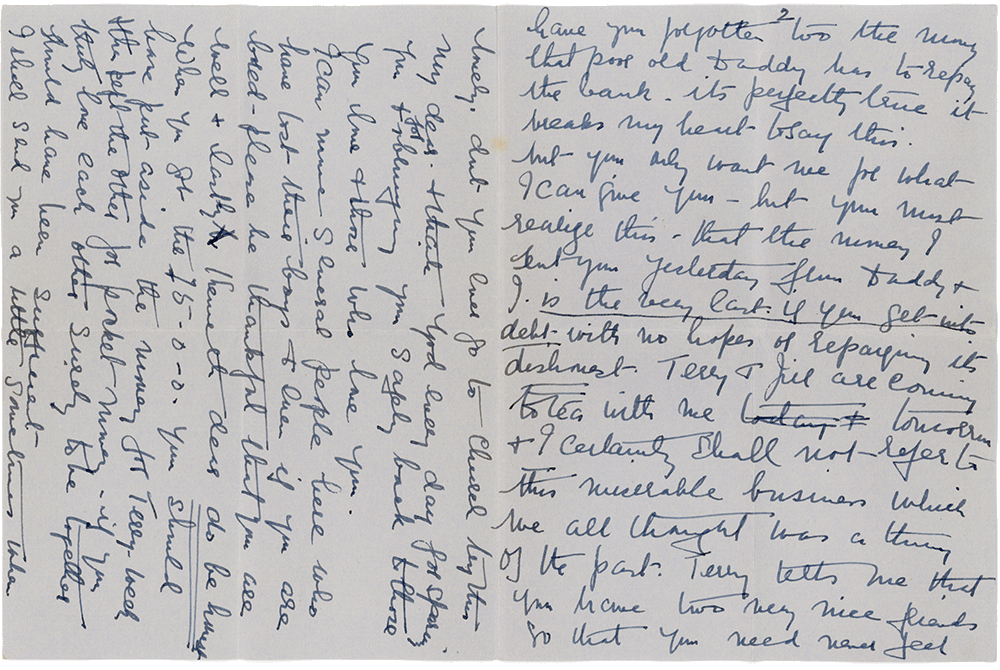 2
have you forgotten too the money
that poor old Daddy has to repay
the bank. its perfectly true it
breaks my heart to say this.
but you only want me for what
I can give you - but you must
realize this - that the money I
sent you yesterday from Daddy &
is the very last. if you get into
debt. with no hopes of repaying its
dishonest. Terry & Jill are coming
to tea with me today & tomorrow
& I certainly Shall not refer to
this miserable business which
we all thought was a thing
of the past. Terry tells me that
you have two very nice friends
so that you need never feel
lonely. dont you ever go to Church try this
My dear. & thank God every day for sparing
you & for bringing you Safely back to those
you love & those who love you.
I can name Several people here who
have lost their boys & even if you are
bored - please be thankful that you are
well & lastly Kenneth dear do be honest
When you got the £75-0-0. you should
have put aside the money for Terry's week
then kept the other for pocket money - if you
truly love each other Surely to be together
should have been Sufficient
I shall send you a little Sometimes when